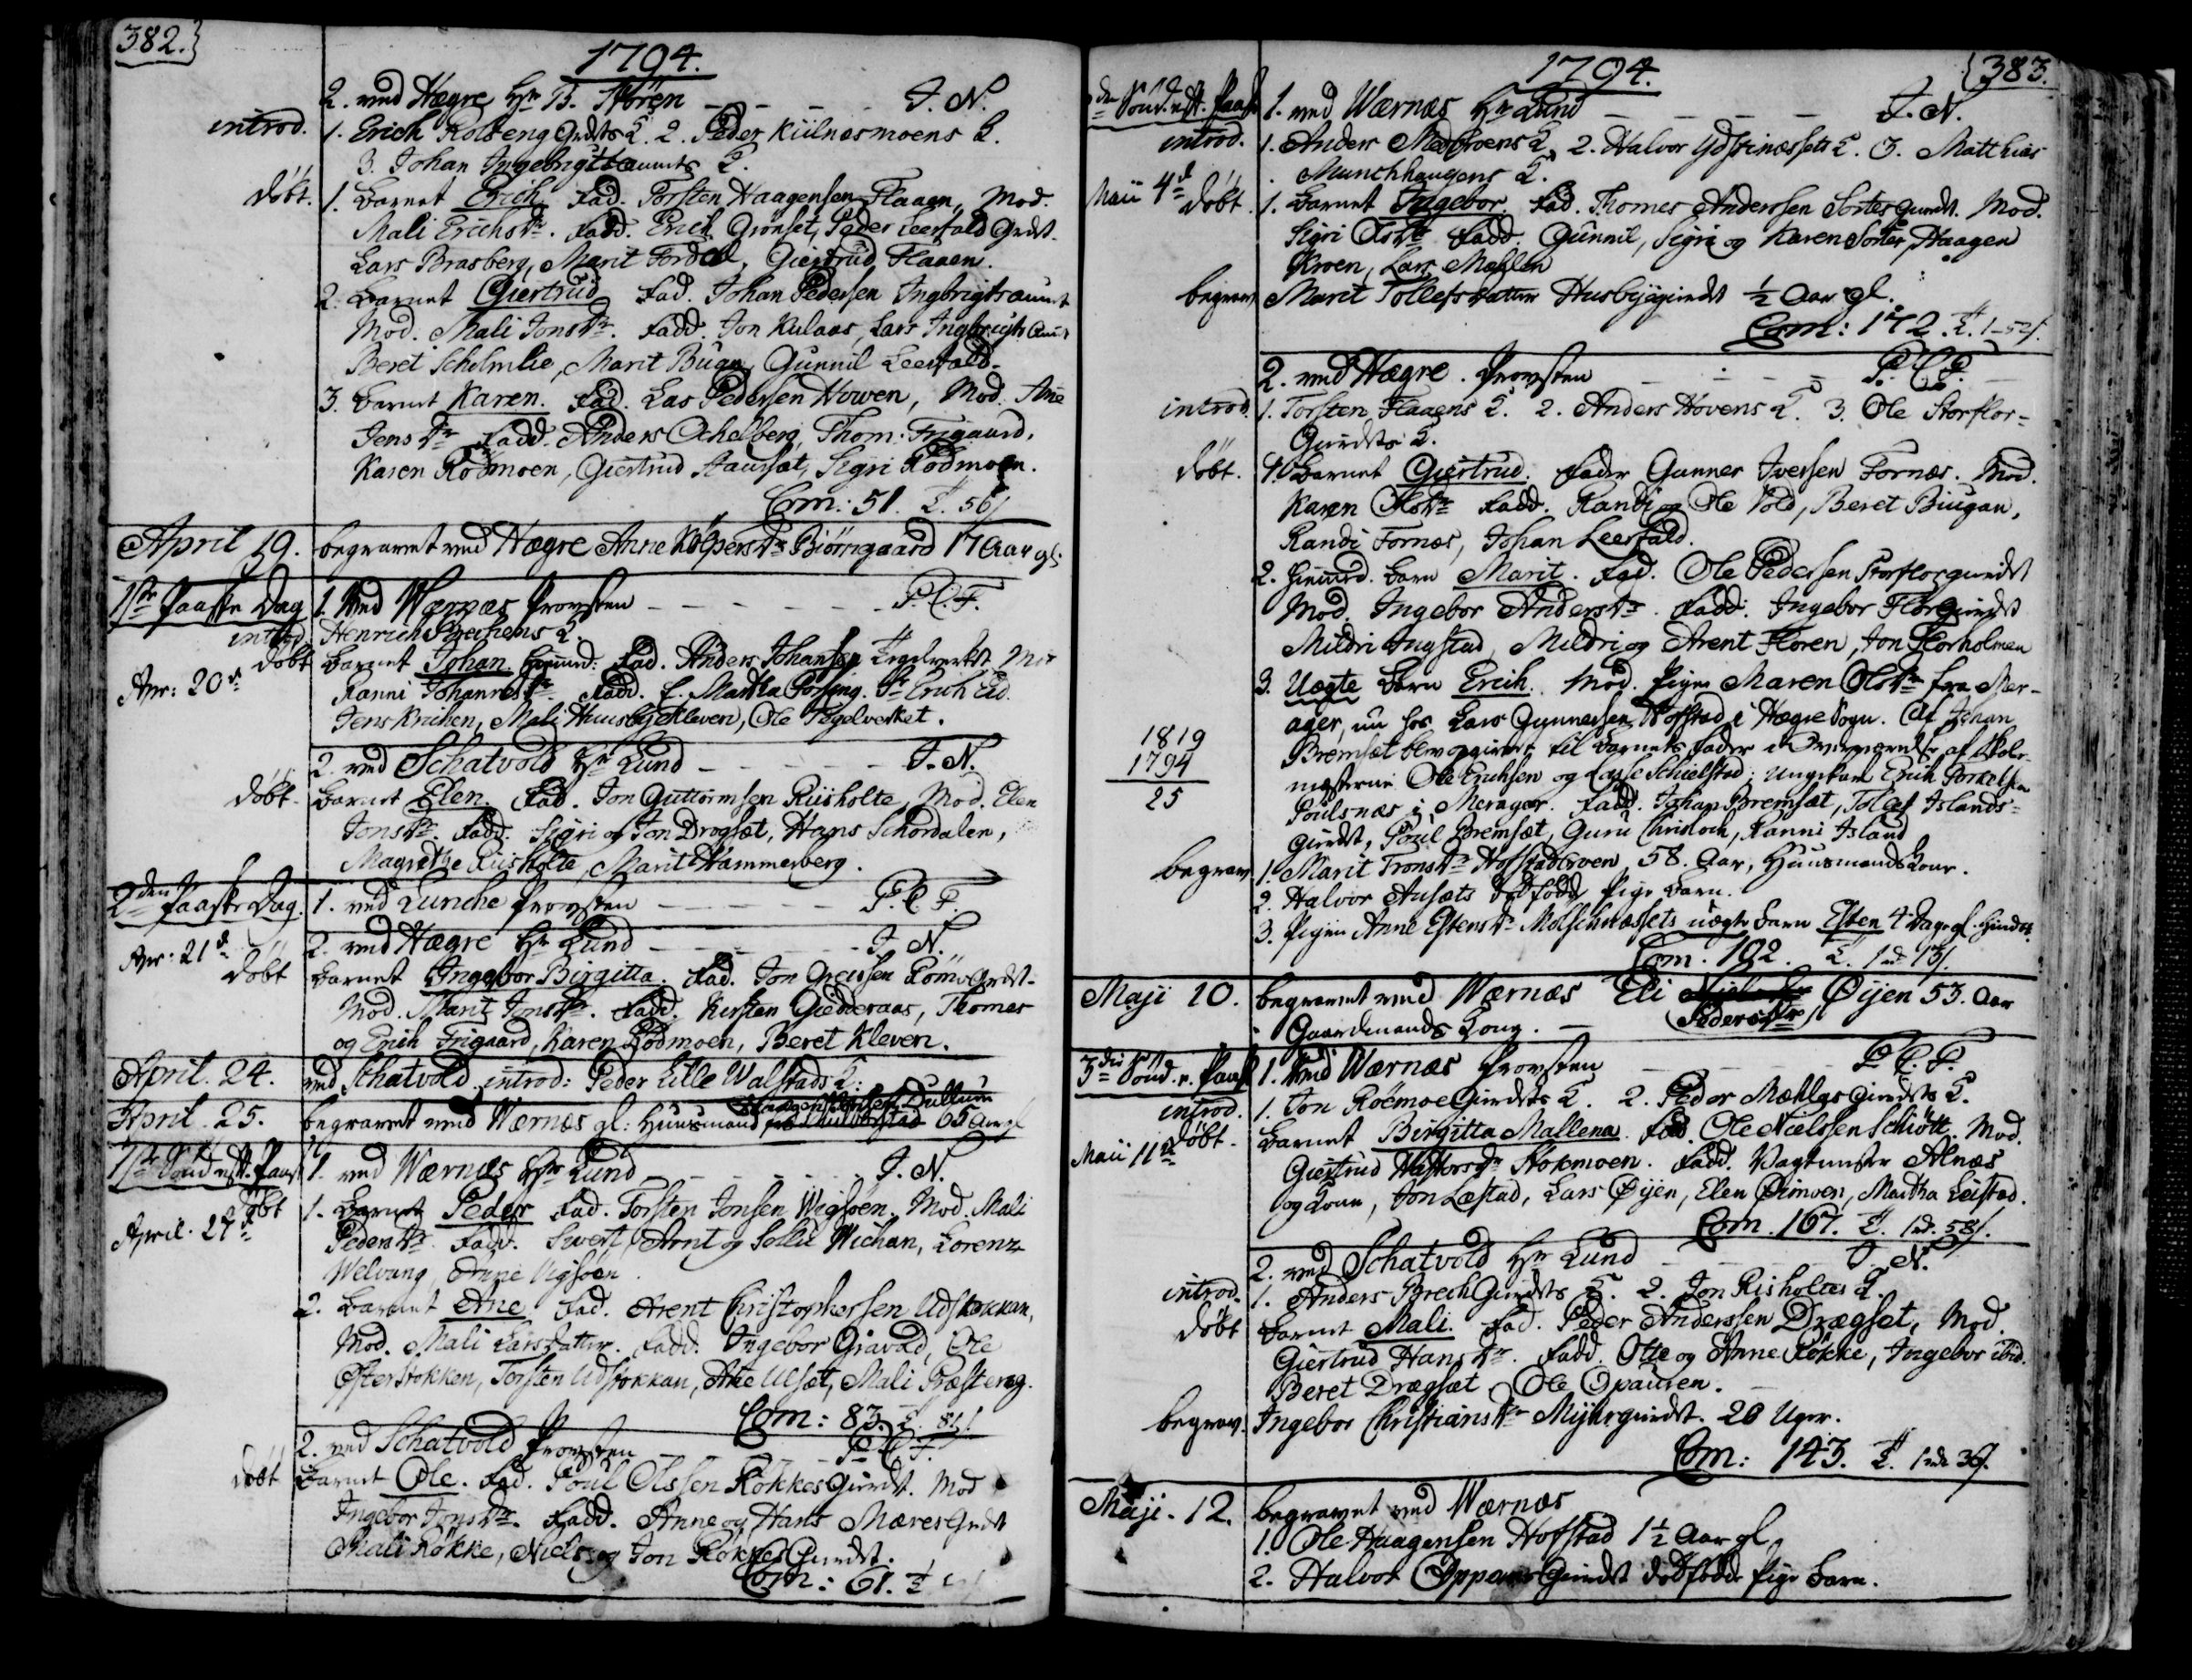 382.
1794.
2. ved Hægre Hr B. Stören - - - - J. N.
introd.
1. Erich Rolseng Grdts K. 2. Peder Kiilnesmoens K.
3. Johan Ingebrigtsaunets K.
döbt.
1. Barnet Erich Fad. Torsten Haagensen Flaaen, Mod.
Mali Erichsdr. Fadd. Erich Grönset, Peder Leerfald Grdt.
Lars Brasberg, Marit Fordal, Giertrud Flaaen.
2. Barnet Giertrud Fad. Johan Pedersen Ingbrigtsaunet
Mod. Mali Jonsdr. Fadd. Jon Kulaas, Lars Ingbrigts Aun.
Beret Schelmlie, Marit Buga, Gunnil Leerfald.
3. Barnet Karen. Fad. Las Pedersen Howen, Mod. Ane
Jensdr Fadd. Anders Ochelberg, Thom: Frigaard,
Karen Rödmoen, Giertrud Aaussæt, Sigri Rödmoen.
Com: 51. T. 56/
April 19. begravet ved Hægre Anne Kolpersdr Biörngaard 17 Aar gl.
1ste Paaske Dag
1. Ved Wærnæs Provsten - - - - P. C. F.
introd. Henrich Brechens K.
Apr: 20de
döbt Barnet Johan hiemmd: Fad. Anders Johansen Teglverket, Mod
Ranni Johannesdr Fadd. f. Martha Forsing. Sr Erich Eid.
Jens Knichen, Mali Huusbyekleven, Ole Tegelverket.
2. ved Schatvold Hr Lund - - - - J. N.
döbt. Barnet Elen. Fad. Jon Guttormsen Riisholte, Mod. Elen
Jonsdr. Fadd. Sigri og Jon Drogset, Hans Schordalen,
Magrethe Riisholte, Marit Hammerberg.
2den Paaske Dag.
1. ved Lunche Provsten - - - P. C. F.
Apr: 21de
2. ved Hægre Hr Lund - - - J. N.
döbt Barnet Ingebor Birgitta. Fad. Jon Greissen Römo Grdt.
Mod. Marit Jonsdr. Fadd. Kirsten Gudderaas, Thomes
og Erich Frigaard, Karen Rödmoen, Beret Kleven.
April. 24. ved Schatvold introd: Peder Lille Walstads K:
April. 25. begravet ved Wærnes gl: Huusmand Haagen Dullum 65 Aar gl
1ste Sönd. eft. Paask
1. ved Wærnes Hr Lund - - - J. N.
April. 27de
döbt 1. Barnet Peder Fad. Torsten Jonsen Wigsöen. Mod. Mali
Pedersdr Fadd. Siwert, Arnt og Sollie Wichan, Lorenz
Welvang, Anne Vigsöen.
2. Barnet Ane Fad. Arent Christophersen Udstokkan,
Mod. Mali Larsdatter. Fadd. Ingebor Gravad, Ole
Österstokken, Torsten Udstokkan, Ane Ulset, Mali Præsteng.
Com: 83. T. 81/
2. ved Schatvold Provsten - - P. C. F.
döbt Barnet Ole. Fad. Poul Olssen Kökkes Gurdt. Mod
Ingebor Jonsdr. Fadd. Anne og Hans Mæres Grdt
Mali Kökke, Niels og Jon Kökkes Gurdt.
Com: 61. T
383.
1794.
2den Sönd. eft. Paaske
1. ved Wærnæs Hr Lund - - - - J. N.
introd. 1. Anders Medbroens K. 2. Halvor Ydstinæssets K. 3. Matthias
Munchhaugens K.
Maii 4de döbt. 1. Barnet Ingebor. Fad. Thomes Anderssen Sortes Gurdt. Mod.
Sigri Olsdr Fadd. Gunnil, Sigri og Karen Sorter, Haagen
Kroen, Lars Mæhlen
begrav. Marit Tollefsdatter Husbyegurdet ½ Aar gl.
Com: 172. T. 1-52/.
2. ved Hægre. Provsten - - - P. C. F.
introd. 1. Torsten Flaaens K. 2. Anders Hovens K. 3. Ole Storflor-
Gurdets K.
döbt. 1. Barnet Giertrud. Fader Gunner Iversen Fornæs. Mod.
Karen Olsdr Fadd. Randi og Ole Vold, Beret Biugan,
Randi Fornæs, Johan Leerfald.
2. hiemmed. Barn Marit. Fad. Ole Pedersen Storflorgurdet
Mod. Ingebor Andersdr. Fadd. Ingebor Florgurdet
Mildri Ingstad, Mildri og Arent Floren, Jon Florholmen
3. Uægte Barn Erich. Mod. Pigen Maren Olsdr fra Mer-
ager, nu hos Lars Gunnersen Hofstad i Hægre Sogn. Af Johan
Bremset blev opgivet til Barnets Fader i Overværelse af Skole-
1819
1794
25
mesterne Ole Erichsen og Lasse Schielstad; Ungekarl Erich Torkelsen
Poulsnæs i Meragar. Fadd. Johan Bremset, Tollef Islands-
gurdt, Poul Bremset, Guru Christloch, Ranni Island
begrav. 1. Marit Tronsdr Hofstadleven, 58. Aar, Huusmands Kone.
2. Halvor Ausets dödfödde Pige Barn.
3. Pigen Anne Estensdr Molschnæssets uægte Barn Esten 4 Dage gl. hiemdt.
Com. 192. T. 1 rd 13/.
Maji 10. begravet ved Wærnæs Eli Pedersdr Öijen 53. Aar
Gaardmands Kone. -
3die Sönd. e. Paask
1. Ved Wærnæs Provsten - - - P. C. F.
introd. 1. Jon Röemoe Gurdets K. 2. Peder Mæhles Gurdets K.
Maii 11te
döbt. Barnet Birgitta Mallena. Fad. Ole Nielssen Schiött. Mod.
Giertrud Hallorsdr Stokmoen. Fadd. Vagtmester Alnæs
og Kone, Jon Læstad, Lars Öijen, Elen Öimoen, Martha Leistad.
Com. 167. T. 1 rd. 58/.
2. ved Schatvold Hr Lund - - - J. N.
introd. 1. Anders Brech Gurdets K. 2. Jon Risholtes K.
döbt Barnet Mali. Fad. Peder Anderssen Drægset, Mod.
Giertrud Hansdr. Fadd. Otte og Anne Kökke, Ingebor ibid.
Beret Drægsæt, Ole Opauren.
begrav. Ingebor Christiansdr Myhrgurdet. 20 Uger.
Com: 143. T. 1 rd 36/.
Maji. 12. begravet ved Wærnæs
1. Ole Haagensen Hofstad 1½ Aar gl.
2. Halvor Oppauer Gurdet dödfödde Pige Barn.